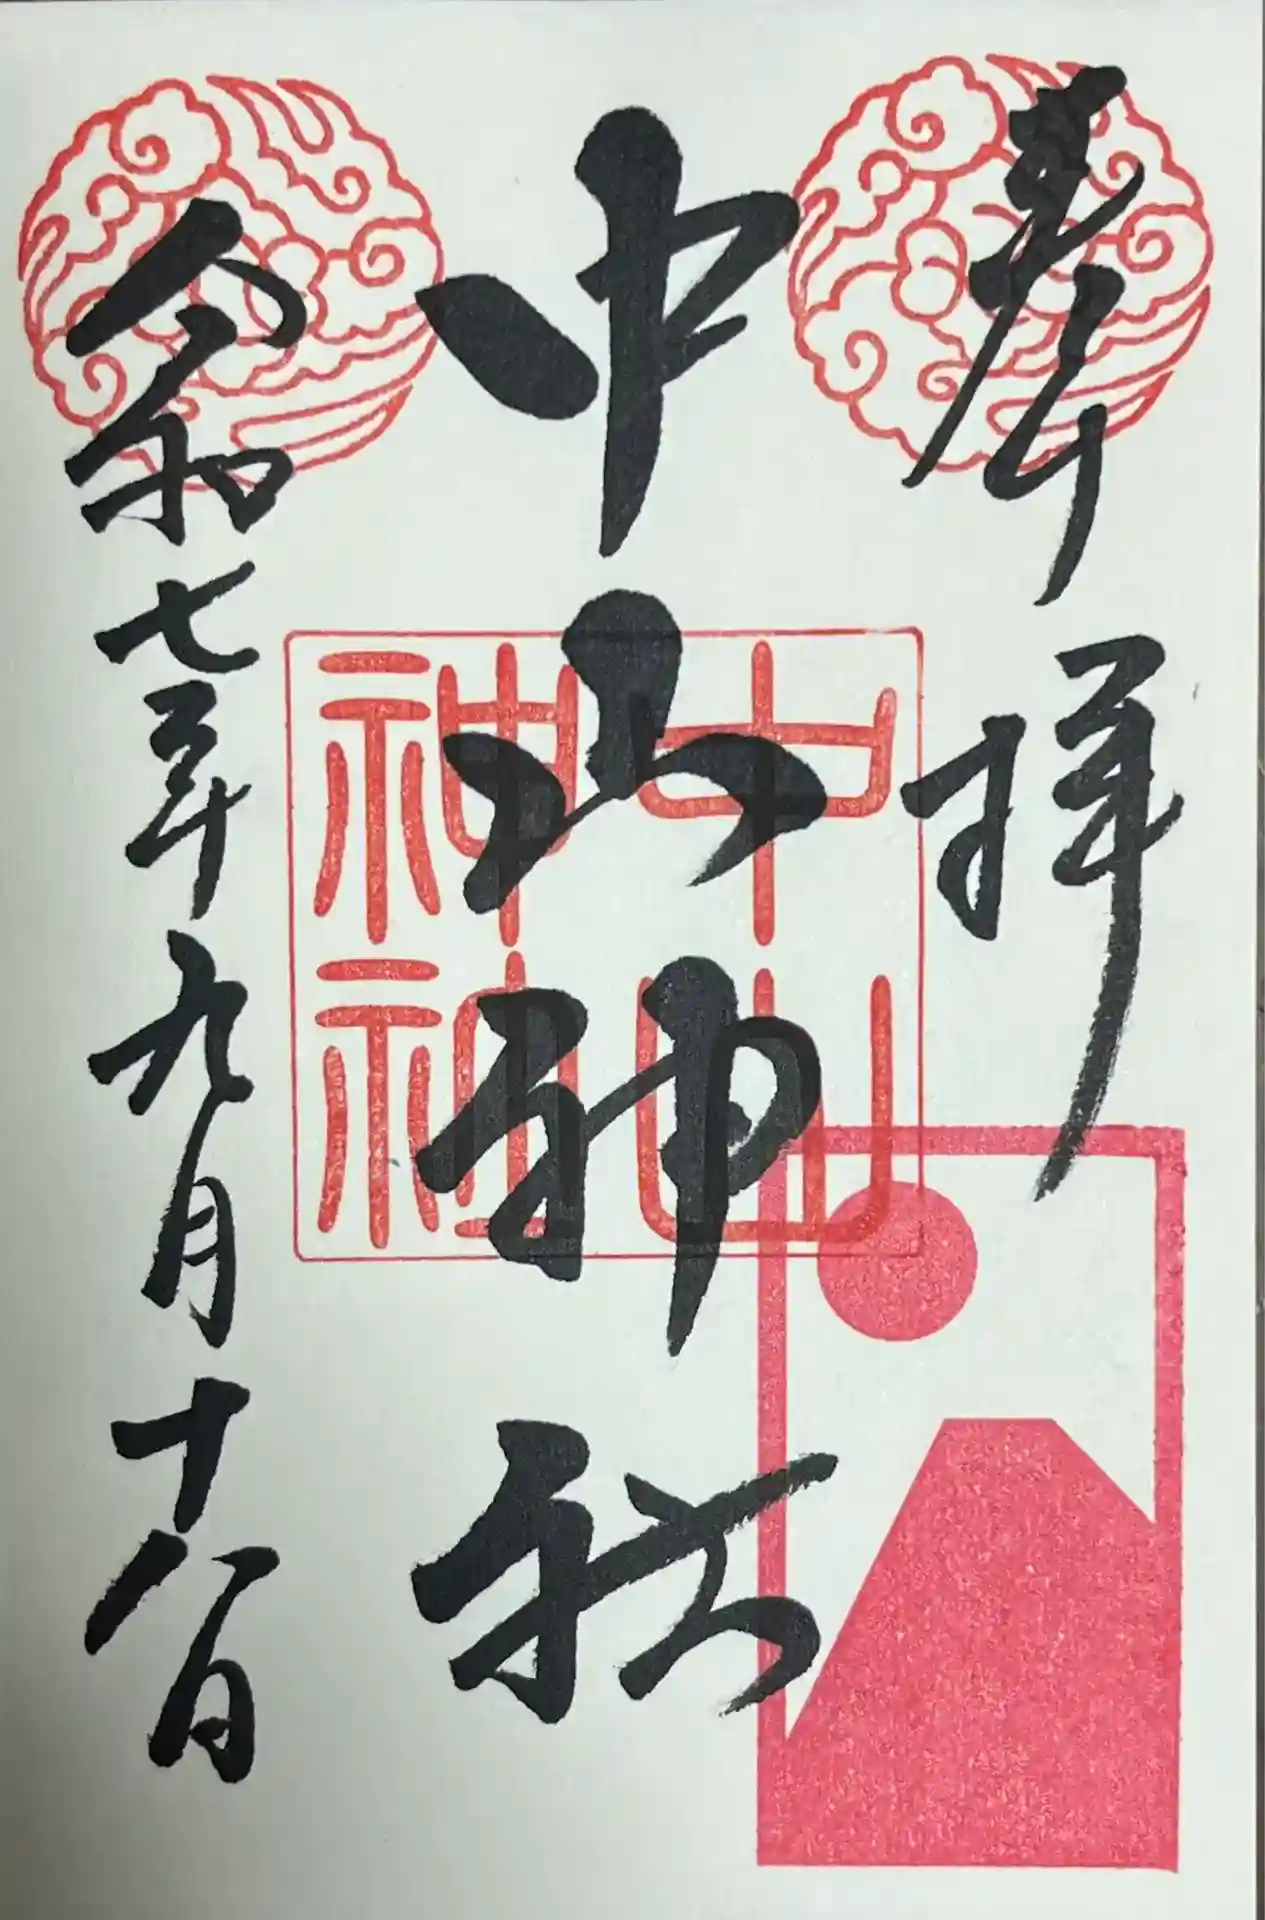 奉拝
中山神社
中山
神社
令和七年九月十八日